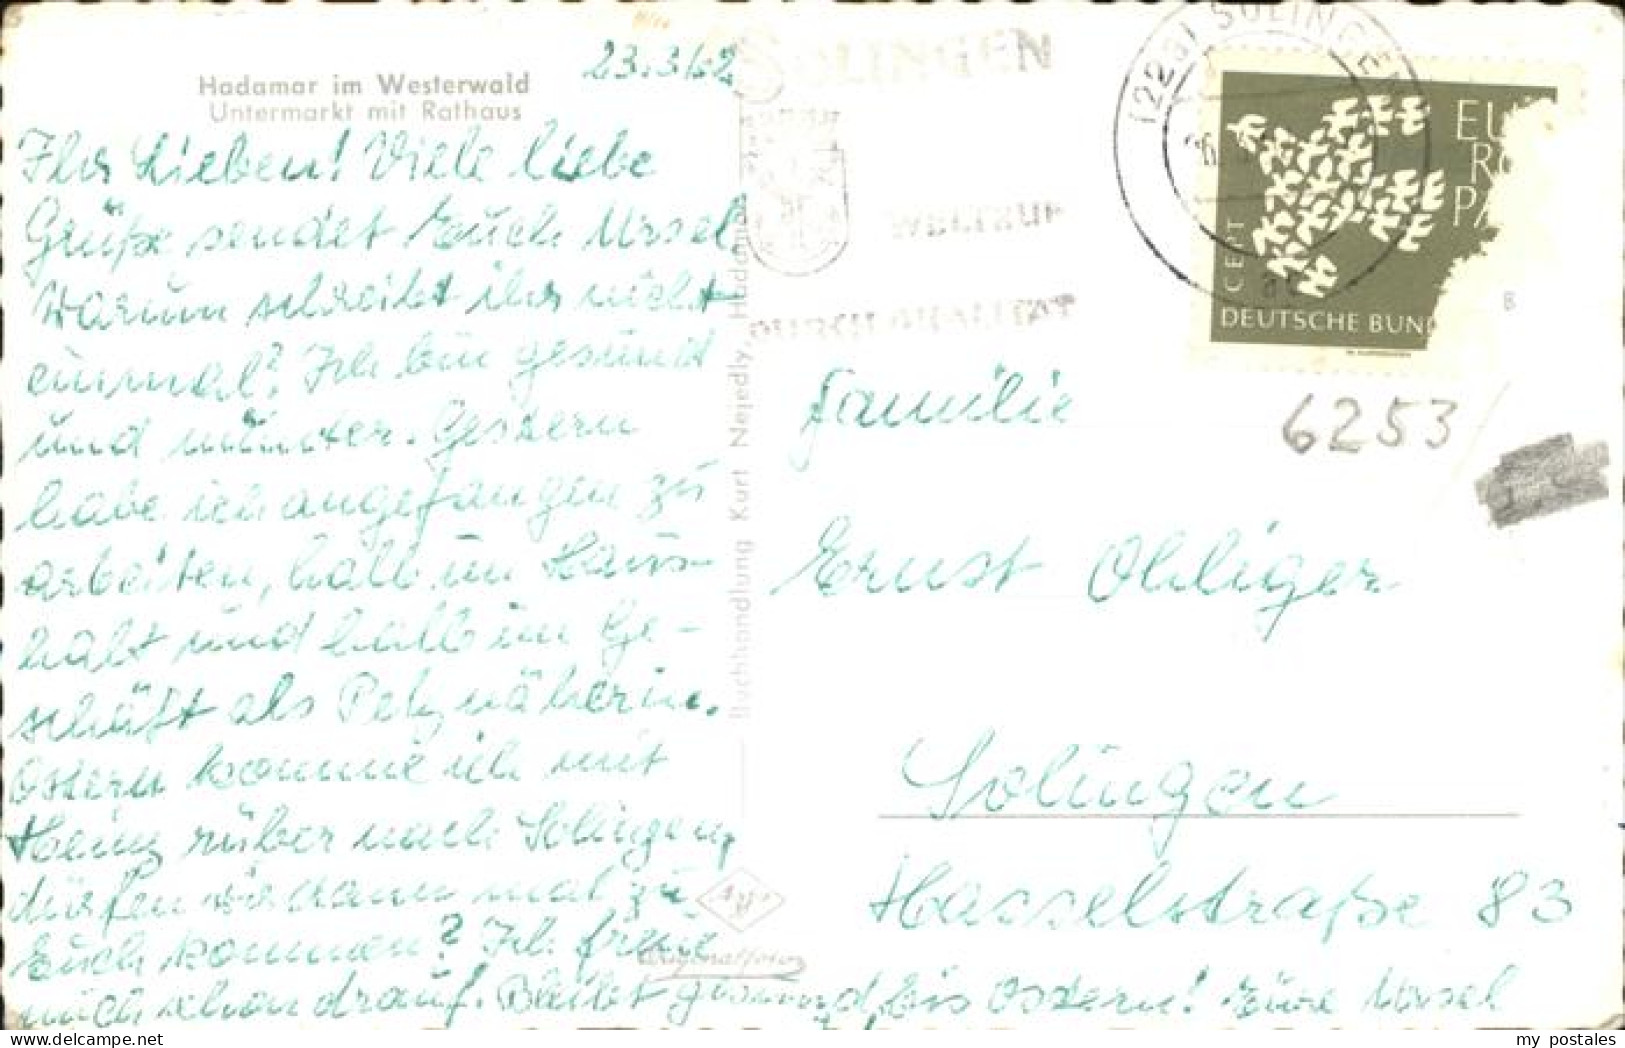 Hadamar im Westerwald
Untermarkt mit Rathaus
23.3.62
Ihr Lieben! Viele liebe
Grüße sendet Euch Ursel
Warum schreibt ihr nicht
einmal? Ich bin gesund
und munter. Gestern
habe ich angefangen zu
arbeiten, halb im Haus-
halt und halb im Ge-
schäft als Pelznäherin.
Ostern komme ich mit
Heinz rüber nach Solingen,
dürfen wir dann mal zu
Euch kommen? Ich freue
mich schon drauf. Bleibt gesund bis Ostern! Eure Ursel
Buchhandlung Kurt Nejedly, Hadamar
Originalfoto
SOLINGEN
WELTRUF
DURCH QUALITÄT
(22a) SOLINGEN
EU
RO
PA
CEPT
DEUTSCHE BUN
B
6253
Familie
Ernst Ohliger
Solingen
Hasselstraße 83
my postales